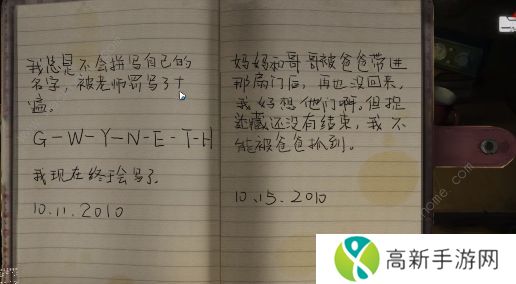 我总是不会拼写自己的
名字，被老师罚写了十
遍。
G-W-Y-N-E-T-H
我现在终于会写了。
10.11.2010
妈妈和哥哥被爸爸带进
那扇门后，再也没回来，
我好想他们啊。但捉
迷藏还没有结束，我不
能被爸爸抓到。
10.15.2010
高新手游网